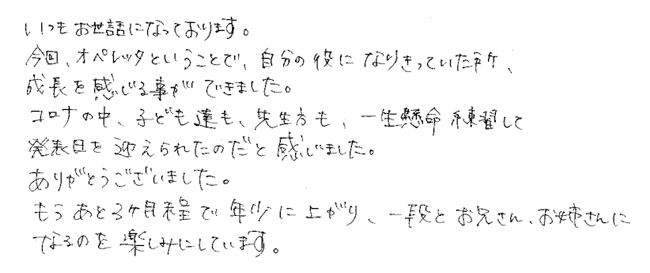 いつもお世話になっております。
今回、オペレッタということで、自分の役になりきっていた所、
成長を感じる事ができました。
コロナの中、子ども達も、先生方も、一生懸命練習して
発表日を迎えられたのだと感じました。
ありがとうございました。
もうあと3ヶ月程で年少に上がり、一段とお兄さん、お姉さんに
なるのを楽しみにしています。